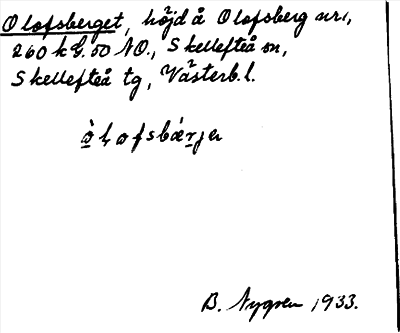 Olofsberget, höjd å Olofsberg nr 1,
260 k G. 50 NO., Skellefteå sn,
Skellefteå tg, Västerb. l.
B. Nygren 1933.